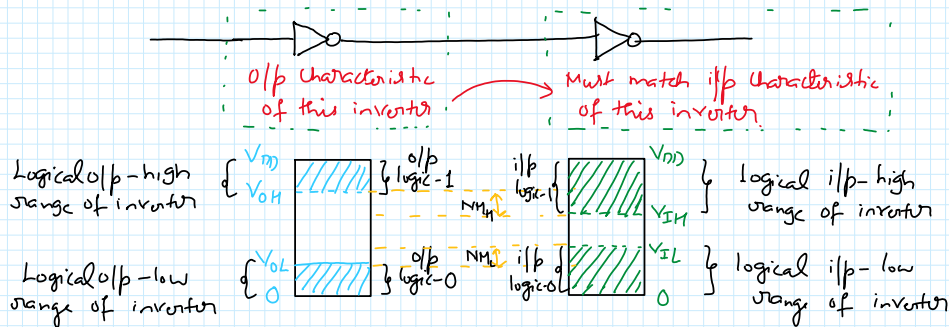 O/p characteristic
of this inverter
Must match i/p characteristic
of this inverter.
Logical o/p-high
range of inverter
VDD
VOH
o/p
logic-1
NMH
i/p
logic-1
VDD
VIH
logical i/p-high
range of inverter
Logical o/p-low
range of inverter
VOL
0
o/p
logic-0
NML
i/p
logic-0
VIL
0
logical i/p-low
range of inverter